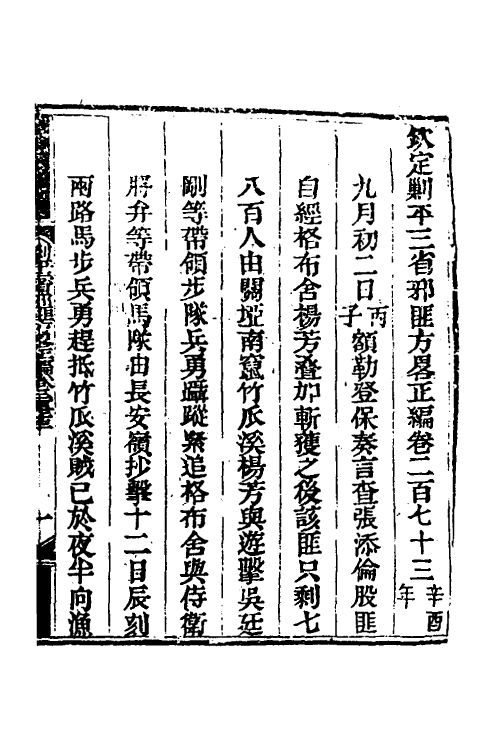 欽定剿平三省邪匪方畧正編卷二百七十三辛酉年
九月初二日丙子額勒登保奏言查張添倫股匪
自經格布舍楊芳叠加斬獲之後該匪只剩七
八百人由關埡南竄竹瓜溪楊芳與遊擊吳廷
剛等帶領步隊兵勇躡蹤緊追格布舍與侍衛
將弁等帶領馬隊由長安嶺抄擊十二日辰刻
兩路馬步兵勇趕抵竹瓜溪賊已於夜半向漁